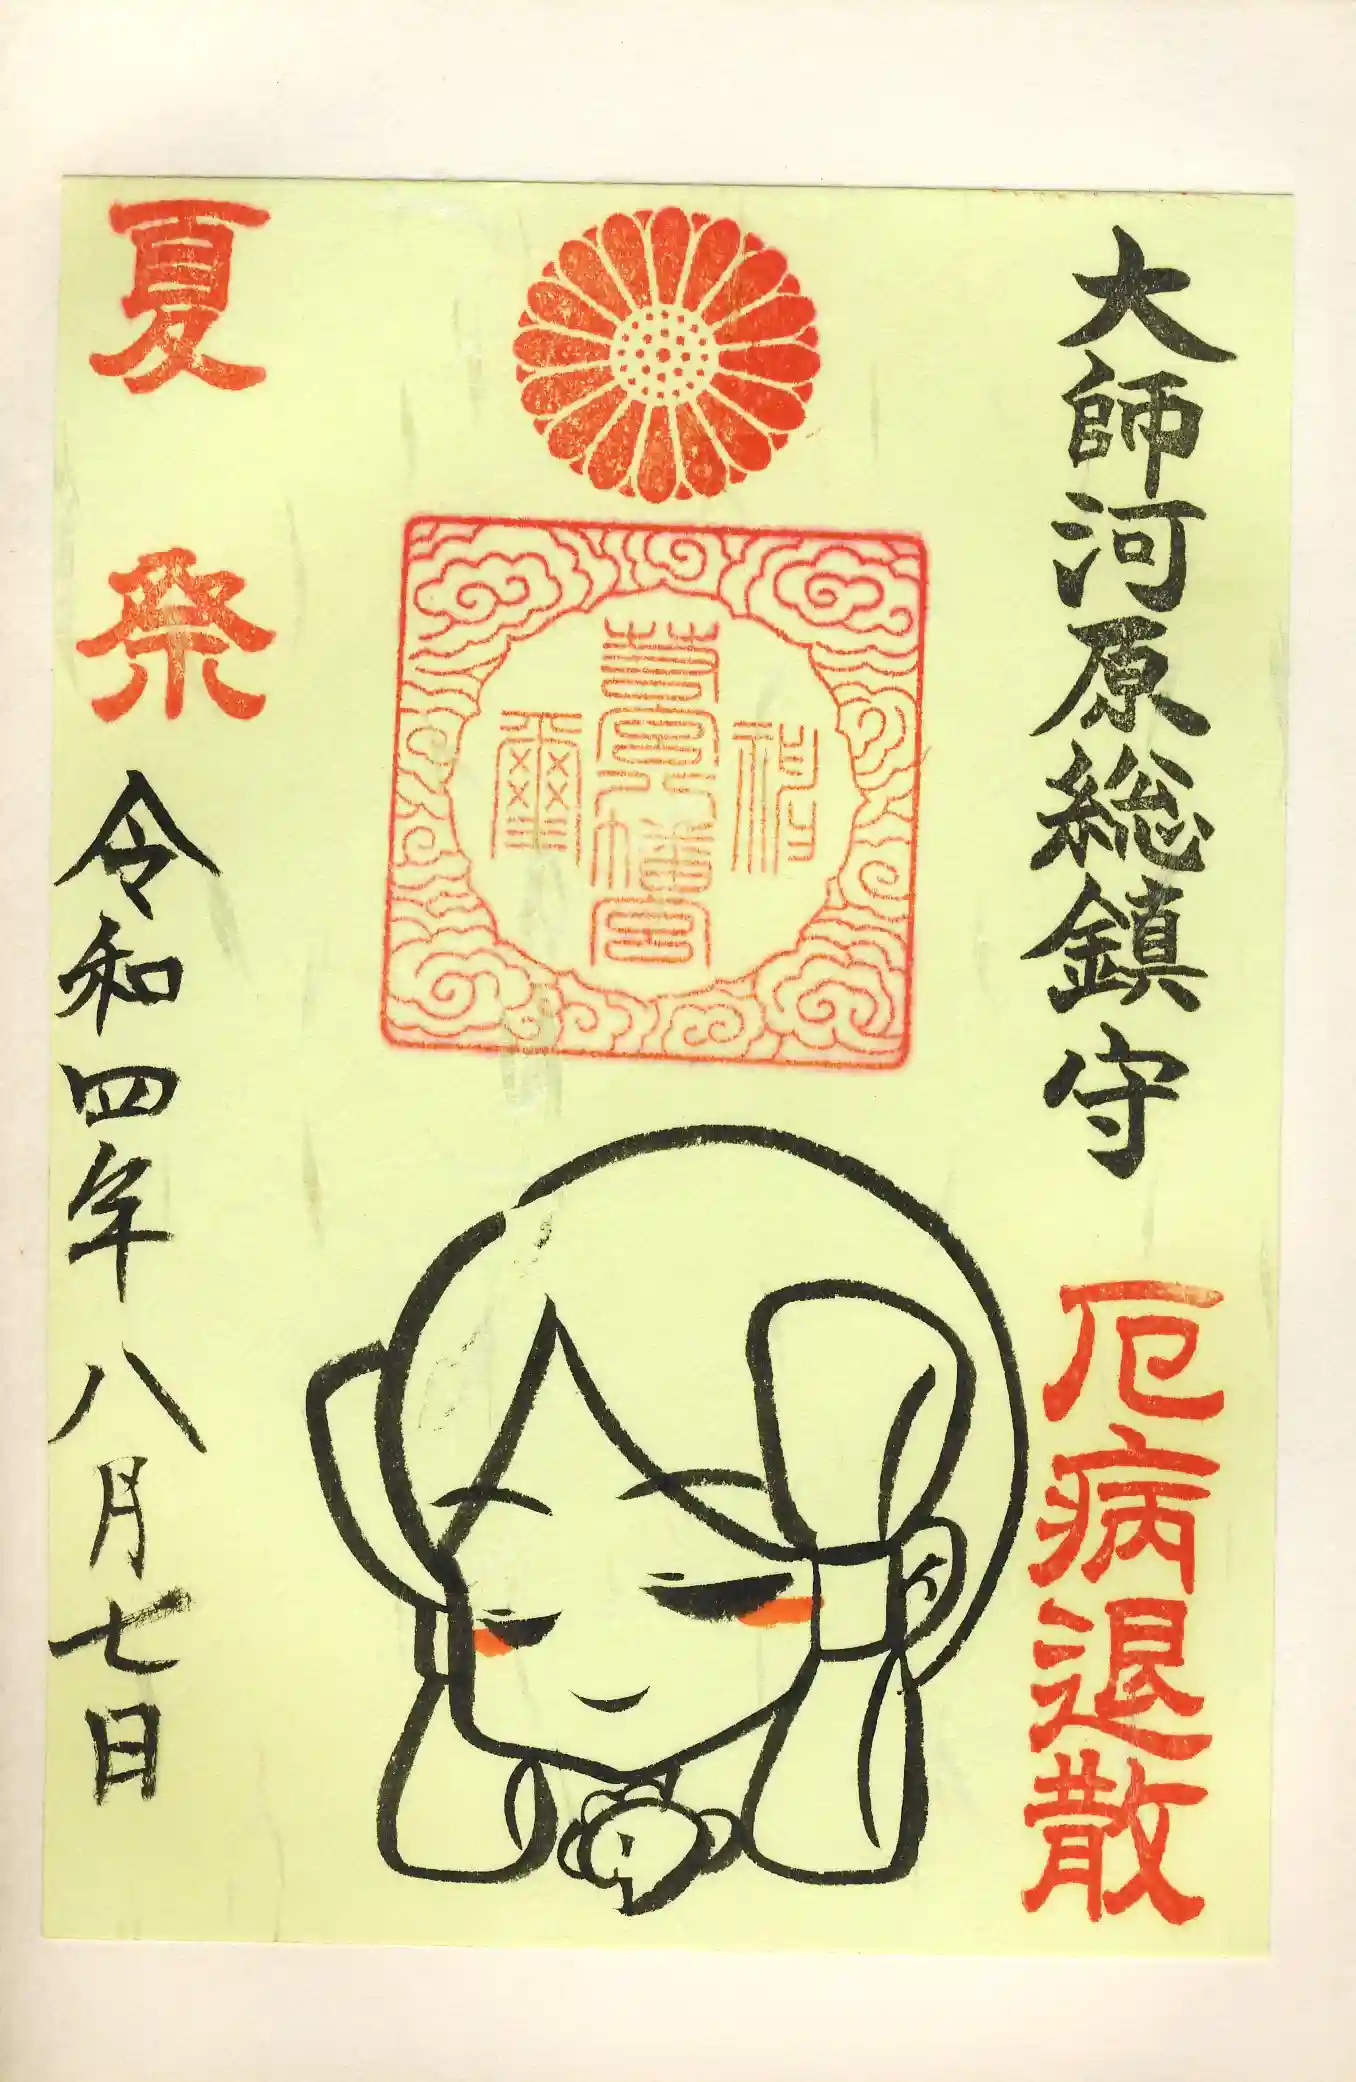 大師河原総鎮守
厄病退散
若宮八幡宮
夏祭
令和四年八月七日